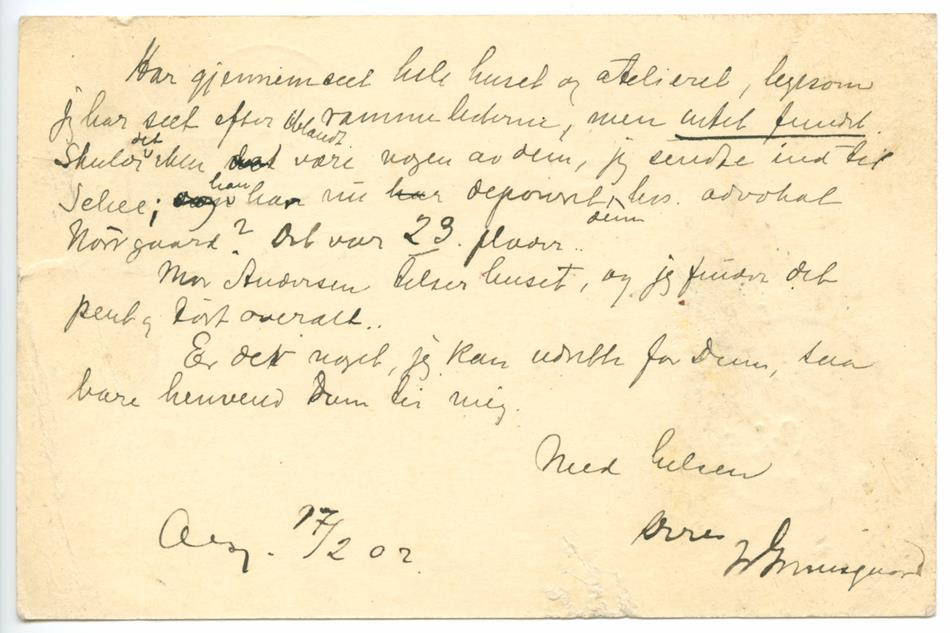 Har gjennemseet hele huset og atelieret, ligesom
jeg har seet efter iblandt rammelederne, men intet fundet.
Skulde det ikke være nogen av dem, jeg sendte ind til
Schee; han har nu deponeret dem hos advokat
Nörrgaard? Det var 23 plader..
Mor Andersen tilser huset, og jeg finder det
pent og tört overalt..
Er det noget, jeg kan udrette for Dem, saa
bare henvend Dem til mig.
Med hilsen
Deres
17/2 02